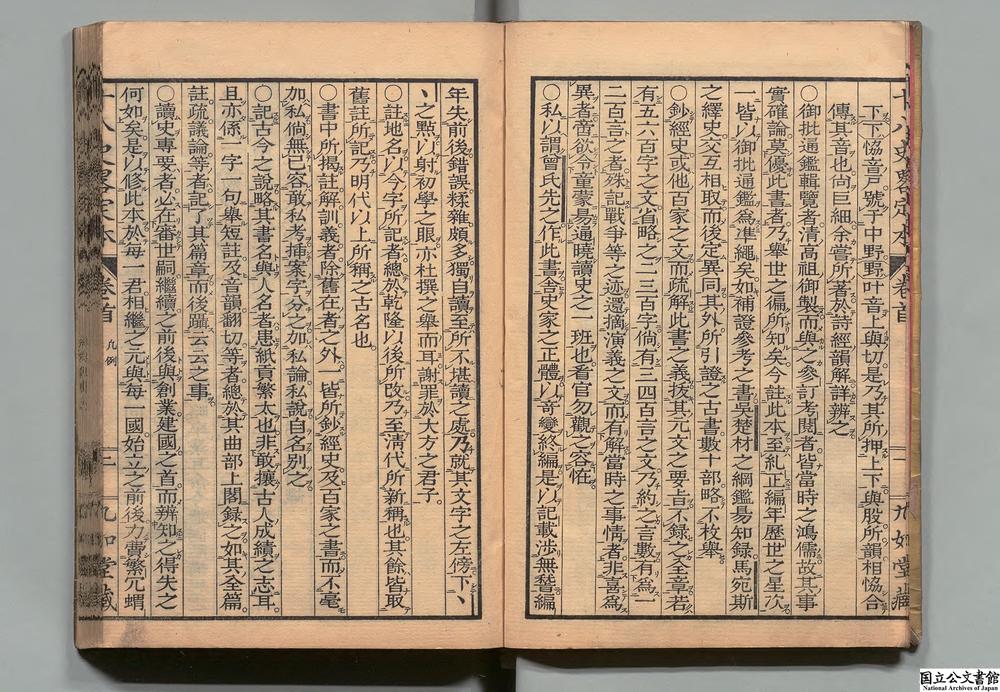 下下恊音戸號于中野野叶音上與切是乃其所押上下與股所韻相恊合
傳其音也尙巨細余嘗所著於詩經韻解詳辨之
〇御批通鑑輯覽者清高祖御製而與之參訂考閱者皆當時之鴻儒故其事
實確論莫優此書者乃舉世之偏所知矣今註此本至糺正編年歷世之星次
一皆以御批通鑑爲準繩矣如補證參考之書吳楚材之綱鑑易知録馬宛斯
之繹史交互相取而後定異同其外所引證之古書數十部略不枚舉
〇鈔經史或他百家之文而疏解此書之義拔其元文之要旨不録之全章若
有五六百字之文省略之二三百字倘有三四百言之文乃約之言數有爲一
二百言之者殊記戰爭等之迹還摘演義之文而有解當時之事情者非喜爲
異者啻欲令童蒙易通曉讀史之一班也看官勿觀之容恠
〇私以謂曾氏先之作此書舍史家之正體以竒變終編是以記載渉無稽編
年失前後錯誤樣雜頗多獨自讀至所不堪讀之處乃就其文字之左傍下丶
丶之㸃以射初學之眼亦杜撰之舉而耳謝罪於大方之君子
〇註地名以今字所記者總於乾隆以後所改乃至清代所新稱也其餘皆取
舊註所記乃明代以上所稱之古名也
〇書中所揭註解訓義者除舊在者之外一皆所鈔經史及百家之書而不毫
加私倘無已容敢私考挿案字分之加私論私說自名別之
〇記古今之說略其書名與人名者患紙頁繁太也非敢攘古人成績之志耳
且亦係一字一句舉短註及音韻翻切等者總於其曲部上閣録之如其全篇
註疏議論等者記了其篇章而後躡云云之事
〇讀史專要者必在審世嗣繼續之前後與創業建國之首而辨知之得失之
何如矣是以修此本於每一君相繼之元與每一國始立之前後力費繁冗蝟
卷首
凡例
二
九如堂藏
國立公文書館
National Archives of Japan